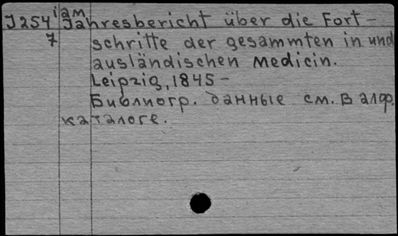 iam
J254 Jahresbericht über die Fort-
7 schritte der gesammten in und
ausländischen Medicin.
Leipzig, 1845-
Библиогр. данные см. в алф.
каталоге.